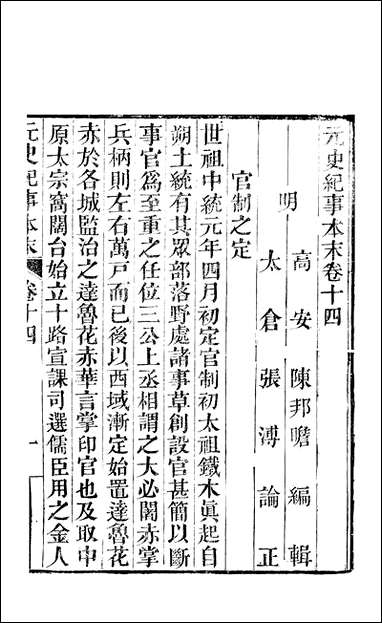 元史紀事本末卷十四
高安陳邦瞻編輯
明
太倉張溥論正
官制之定
世祖中統元年四月初定官制初太祖鐵木眞起自
朔土統有其眾部落野處諸事草創設官甚簡以斷
事官爲至重之任位三公上丞相謂之大必闍赤掌
兵柄則左右萬戸而已後以西域漸定始置達魯花
赤於各城監治之達魯花赤華言掌印官也及取中
原太宗窩闊台始立十路宣課司選儒臣用之金人
元史紀事本末
卷十四
一